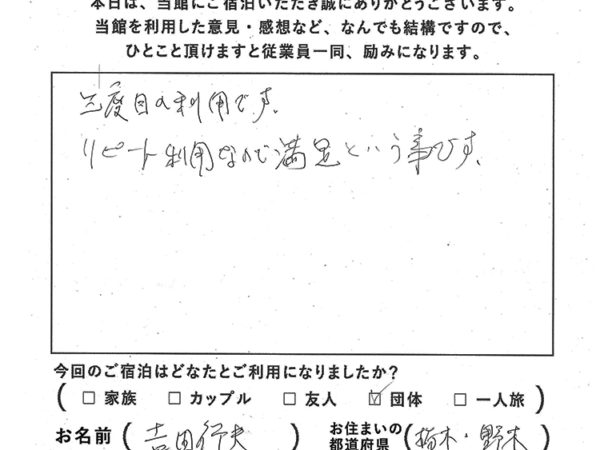 本日は、当館にご宿泊いただき誠にありがとうございます。
当館を利用した意見・感想など、なんでも結構ですので、
ひとこと頂けますと従業員一同、励みになります。
三度目の利用です。
リピート利用なので満足という事です。
今回のご宿泊はどなたとご利用になりましたか？
( □ 家族 □ カップル □ 友人 ☑ 団体 □ 一人旅 )
お名前 ( 吉田行夫 ) お住まいの都道府県 ( 栃木・野木